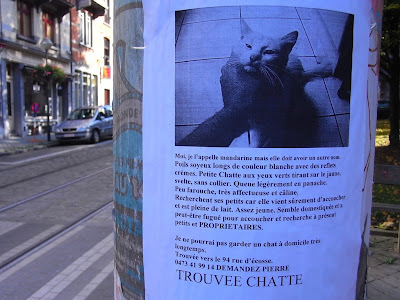 Moi, je l'appelle mandarine mais elle doit avoir un autre nom
Poils soyeux longs de couleur blanche avec des reflex
crèmes. Petite Chatte aux yeux verts tirant sur le jaune,
svelte, sans collier. Queue légèrement en panache.
Peu farouche, très affectueuse et câline.
Recherchent ses petits car elle vient sûrement d'accoucher
et est pleine de lait. Assez jeune. Semble domestiquée et a
peut-être fugué pour accoucher et recherche à présent
petits et PROPRIETAIRES.
Je ne pourrai pas garder un chat à domicile très
longtemps.
Trouvée vers le 94 rue d'écosse.
0473 41 99 14 DEMANDEZ PIERRE
TROUVEE CHATTE